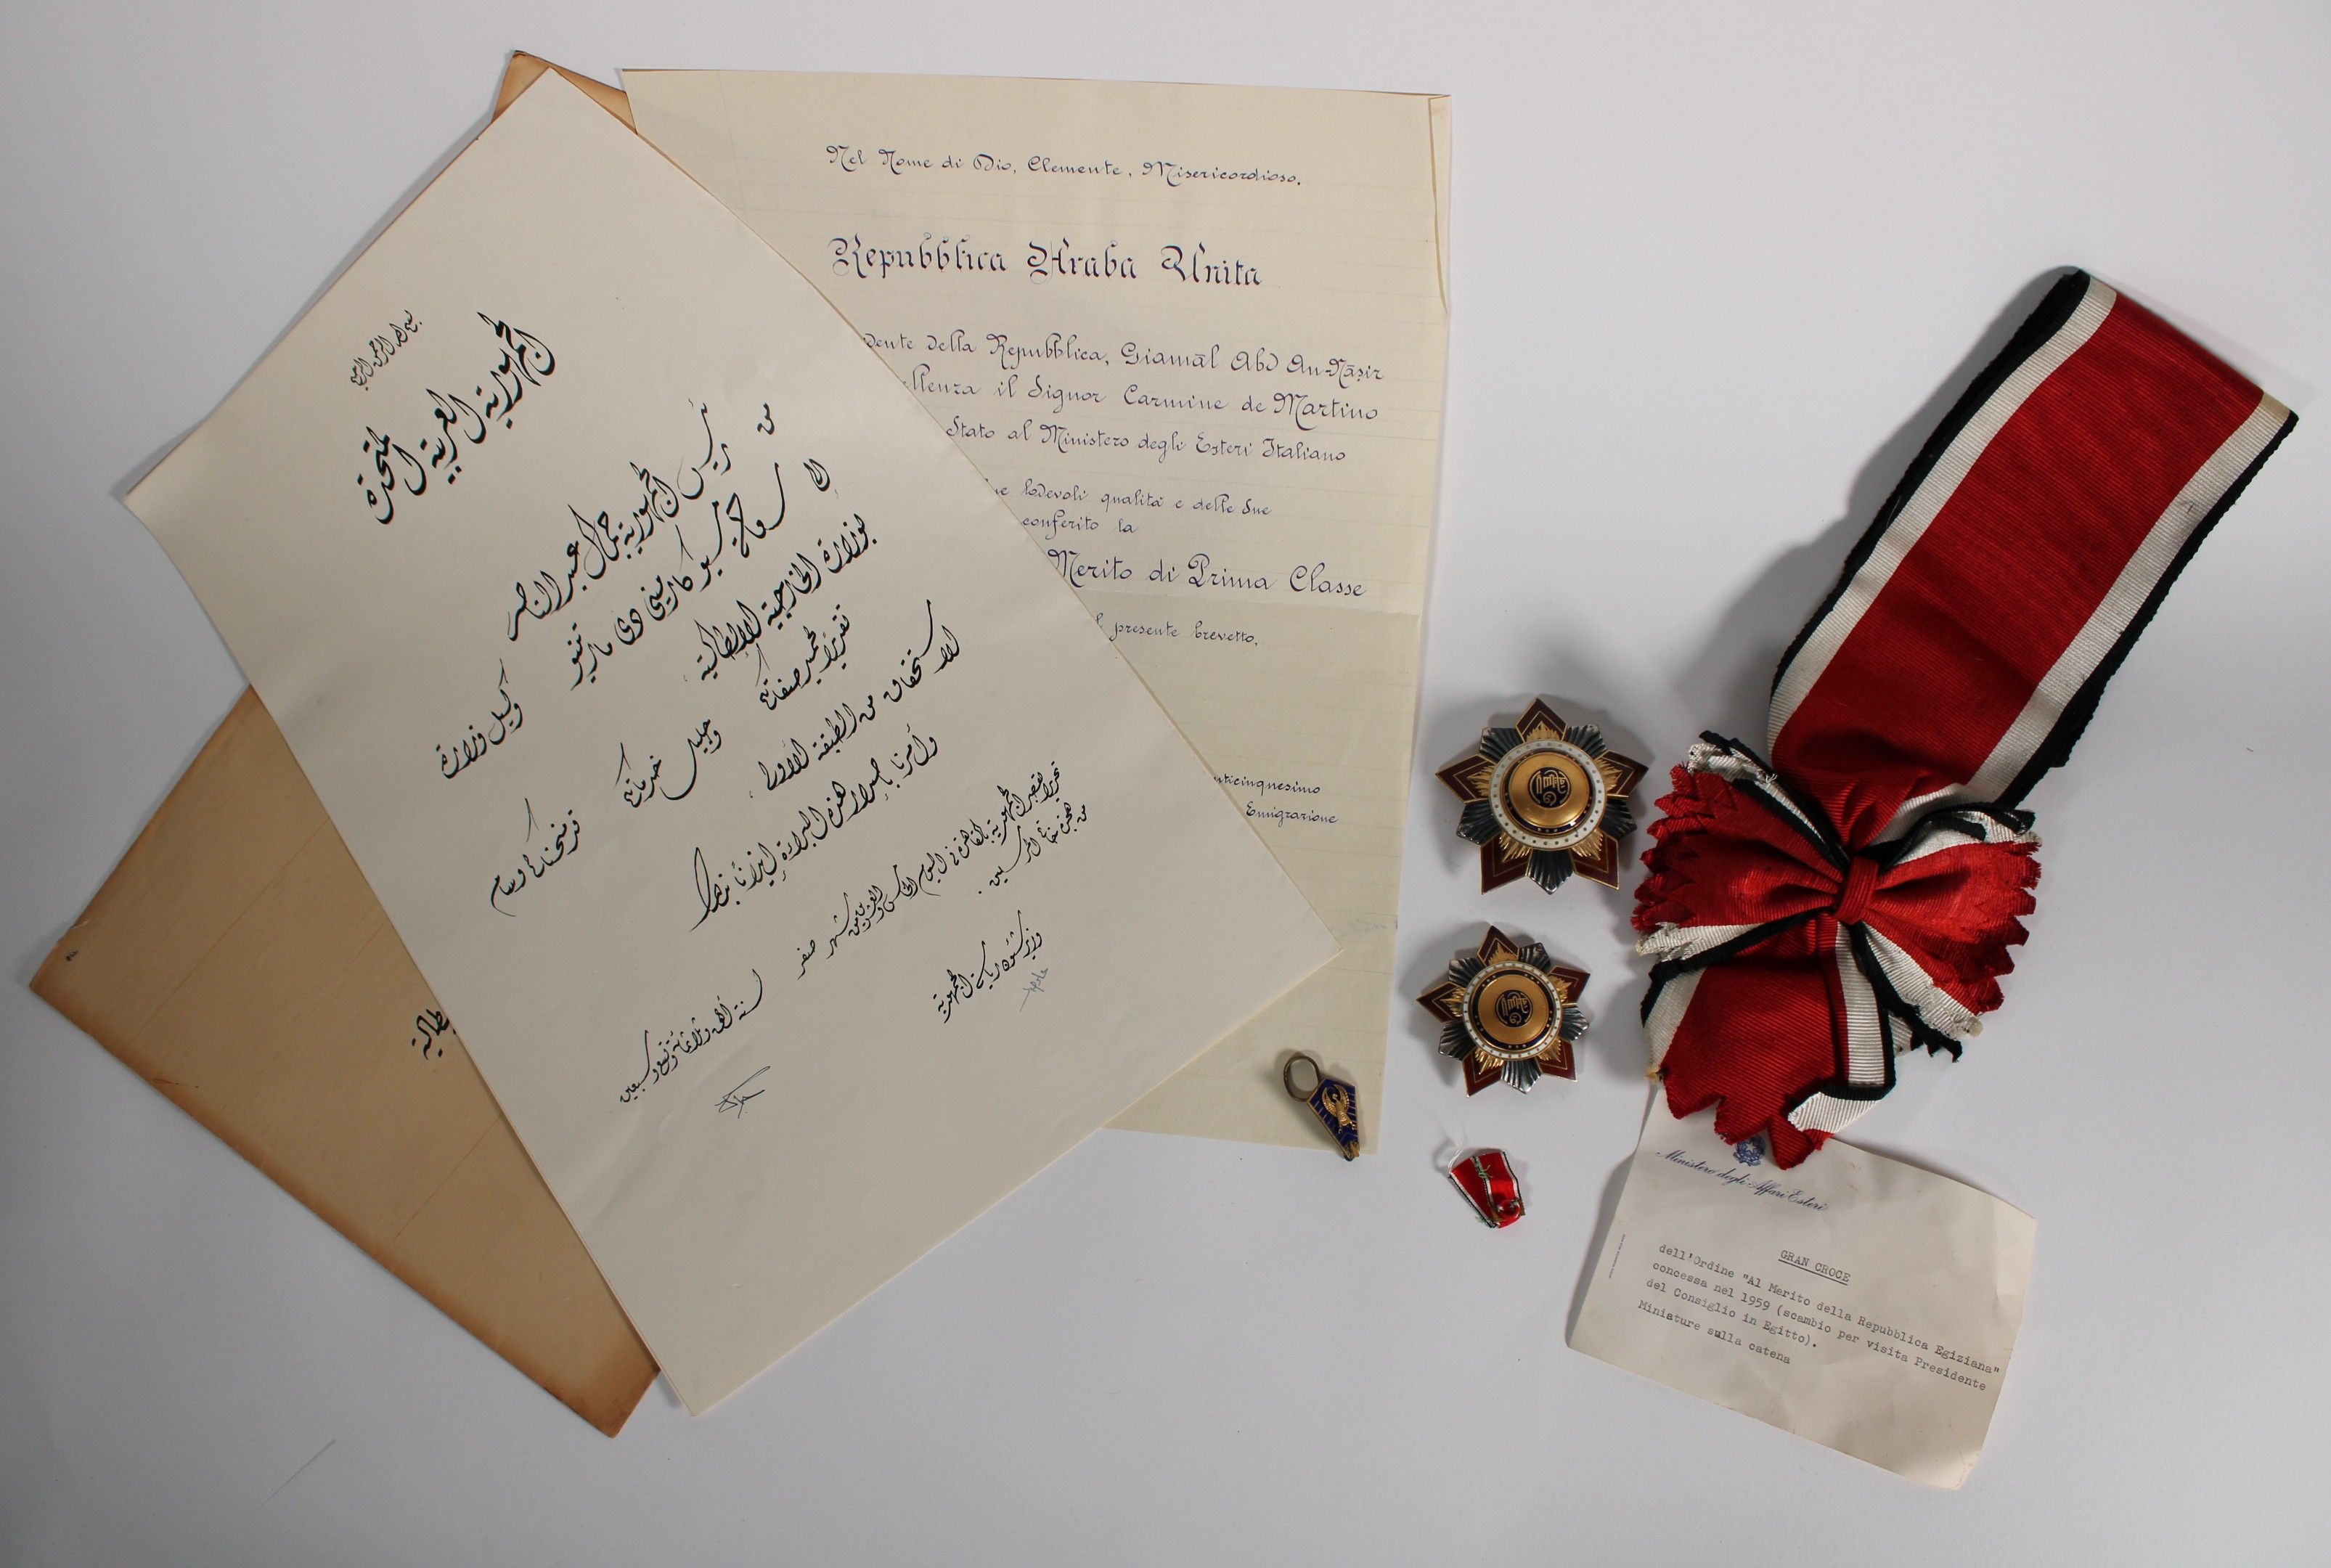 بسم الله الرحمن الرحيم
الجمهورية العربية المتحدة
من
رئيس الجمهورية جمال عبد الناصر
إلى
كارميني دى مارتينو
وكيل وزارة
بوزارة الخارجية الإيطالية
تقديرًا لحميد صفاتكم
وجليل خدماتكم
قد منحناكم وسام
الاستحقاق من الطبقة الأولى
وأمرنا بإصدار هذه البراءة إيذانًا بذلك
تحريرا بقصر الجمهورية بالقاهرة في اليوم الخامس والعشرين من شهر صفر
لسنة ألف وثلاثمائة وتسع وسبعين
من هجرة خاتم المرسلين .
وزير شئون رياسة الجمهورية
Nel Nome di Dio, Clemente, Misericordioso.
Repubblica Araba Unita
dente della Repubblica, Giamāl Abd An-Nāṣir
ellenza il Signor Carmine de Martino
Stato al Ministero degli Esteri Italiano
ue lodevoli qualità e delle Sue
conferito la
Merito di Prima Classe
l presente brevetto.
nticinquesimo
Emigrazione
Ministero degli Affari Esteri
GRAN CROCE
dell'Ordine "Al Merito della Repubblica Egiziana"
concessa nel 1959 (scambio per visita Presidente
del Consiglio in Egitto).
Miniature sulla catena